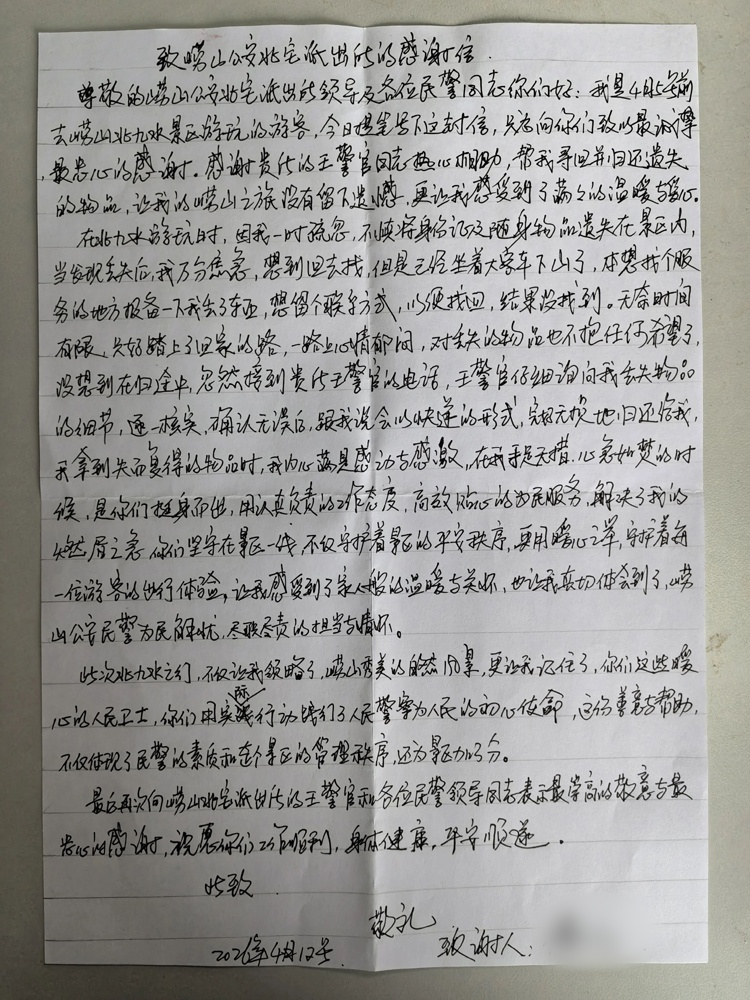 致崂山公安北宅派出所的感谢信.
尊敬的崂山公安北宅派出所领导及各位民警同志你们好：我是4月5号前
去崂山北九水景区游玩的游客，今日提笔写下这封信，只为向你们致以最诚挚
，最衷心的感谢。感谢贵所的王警官同志热心相助，帮我寻回并归还遗失
的物品，让我的崂山之旅没有留下遗憾，更让我感受到了满满的温暖与安心。
在北九水游玩时，因我一时疏忽，不慎将身份证及随身物品遗失在景区内，
当发现丢失后，我万分焦急，想到回去找，但是已经坐着大客车下山了，本想找个服
务的地方报备一下我丢了东西，想留个联系方式，以便找回，结果没找到。无奈时间
有限，只好踏上了回家的路，一路上心情郁闷，对丢失的物品也不抱任何希望了，
没想到在归途中，忽然接到贵所王警官的电话，王警官仔细询问我丢失物品
的细节，逐一核实，确认无误后，跟我说会以快递的形式，完好无损地归还给我，
我拿到失而复得的物品时，我内心满是感动与感激，在我手足无措，心急如焚的时
候，是你们挺身而出，用认真负责的工作态度，高效贴心的为民服务，解决了我的
燃眉之急，你们坚守在景区一线，不仅守护着景区的平安秩序，更用暖心之举，守护着每
一位游客的出行体验，让我感受到了家人般的温暖与关怀，也让我真切体会到了，崂
山公安民警为民解忧，尽职尽责的担当与情怀。
此次北九水之行，不仅让我领略了，崂山秀美的自然风景，更让我记住了，你们这些暖
心的人民卫士，你们用实际行动践行了人民警察为人民的初心使命，这份善意与帮助，
不仅体现了民警的素质和整个景区的管理秩序，还为景区加了分。
最后再次向崂山北宅派出所的王警官和各位民警领导同志表示最崇高的敬意与最
衷心的感谢，祝愿你们工作顺利，身体健康，平安顺遂。
此致
敬礼
2026年4月12号. 致谢人：